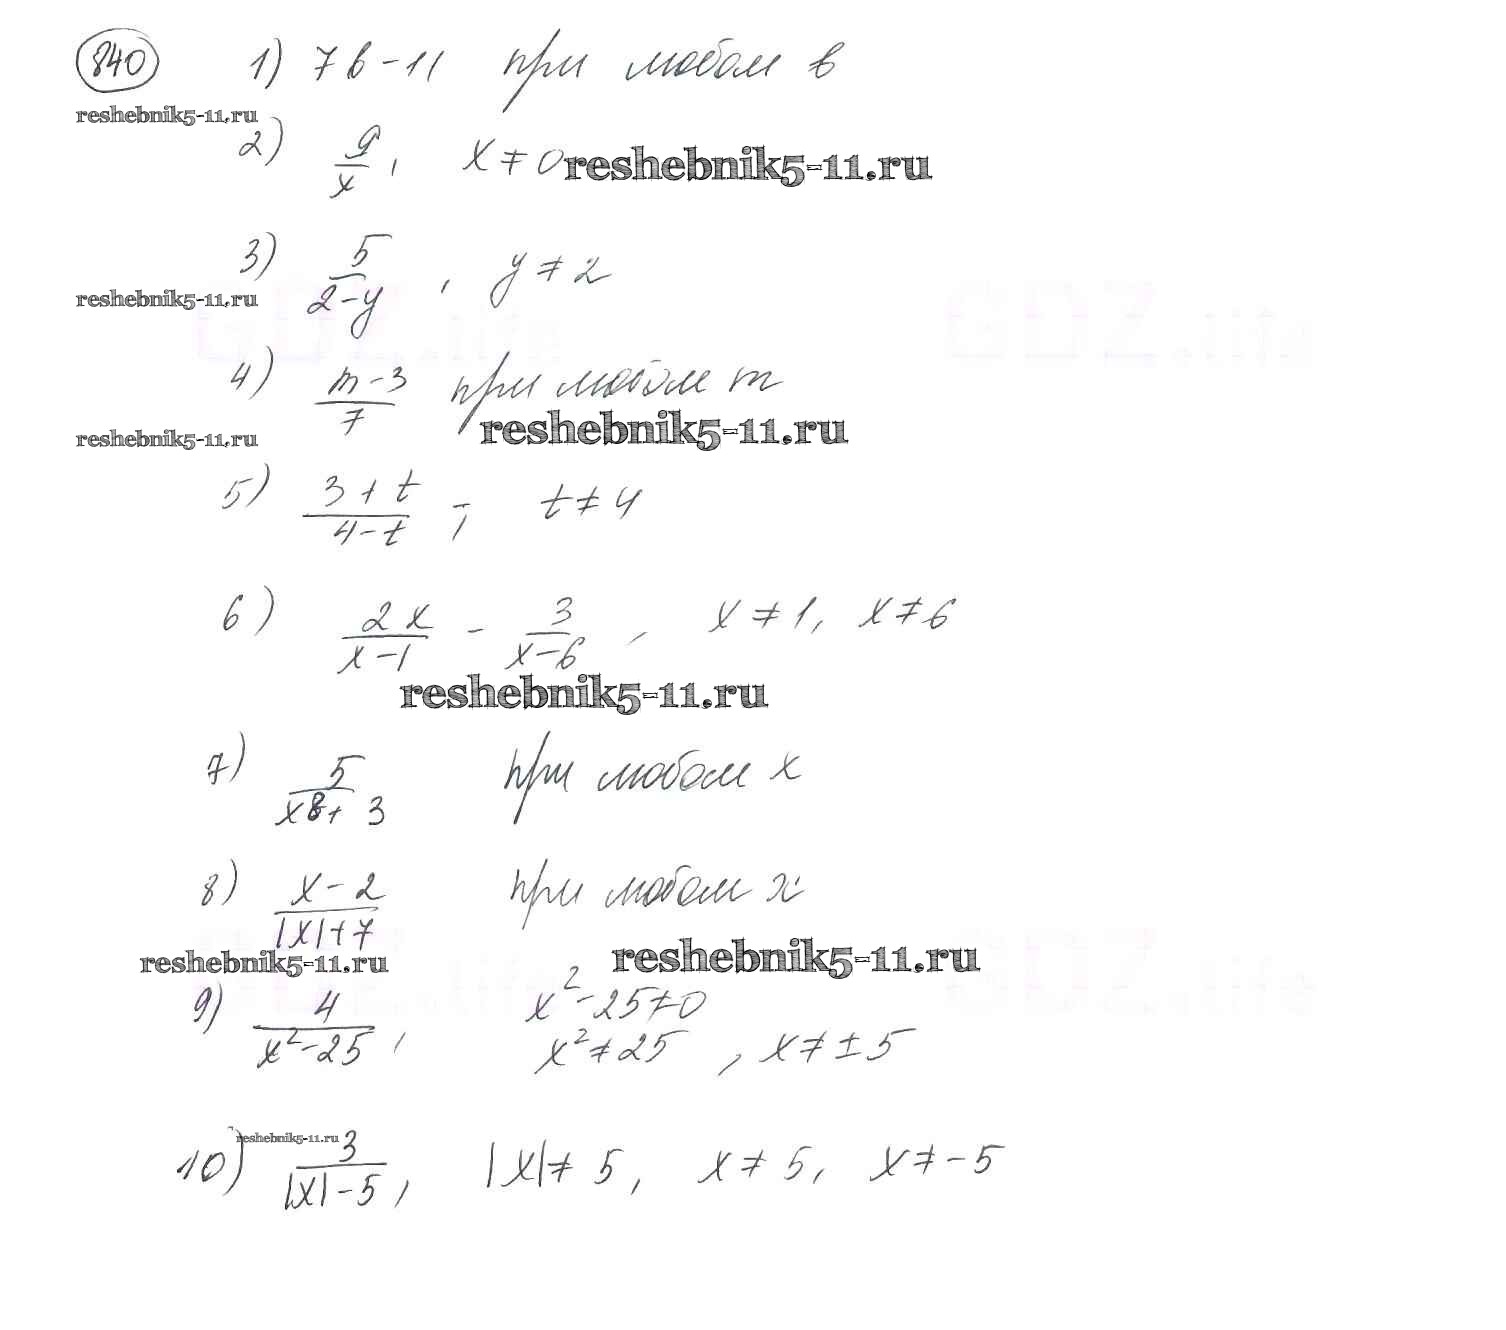 840 1) 7в-11 при любом в
reshebnik5-11.ru
2) 9/x, x≠0 reshebnik5-11.ru
3) 5/(2-y), y≠2
reshebnik5-11.ru
GDZ.life GDZ.life
4) (m-3)/7 при любом m
reshebnik5-11.ru reshebnik5-11.ru
5) (3+t)/(4-t); t≠4
6) 2x/(x-1) - 3/(x-6), x≠1, x≠6
reshebnik5-11.ru
7) 5/(x⁸+3) при любом x
8) (x-2)/(|x|+7) при любом x
reshebnik5-11.ru reshebnik5-11.ru
GDZ.life GDZ.life
9) 4/(x²-25), x²-25≠0
x²≠25, x≠±5
reshebnik5-11.ru
10) 3/(|x|-5), |x|≠5, x≠5, x≠-5